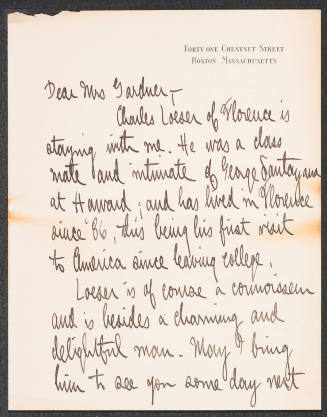 FORTY-ONE CHESTNUT STREET
BOSTON MASSACHUSETTS
Dear Mrs Gardner,-
Charles Loeser of Florence is
staying with me. He was a class
mate and intimate of George Santayana
at Harvard; and has lived in Florence
since '86, this being his first visit
to America since leaving college.
Loeser is of course a connoisseur
and is besides a charming and
delightful man. May I bring
him to see you some day next